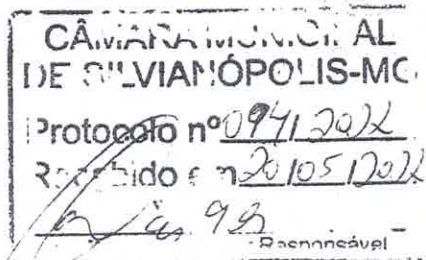 CÂMARA MUNICIPAL
DE SILVIANÓPOLIS-MG
Protocolo nº 094/2022
Recebido em 20/05/2022
Responsável